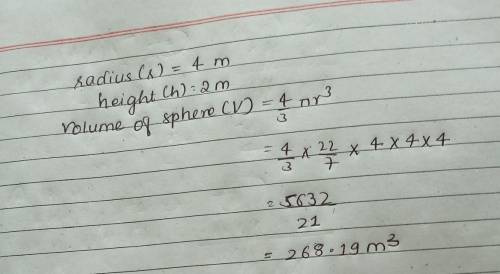 radius(r) = 4 m
height(h) = 2m
volume of sphere (V) = 4/3 πr³
= 4/3 × 22/7 × 4 × 4 × 4
= 5632/21
= 268.19 m³